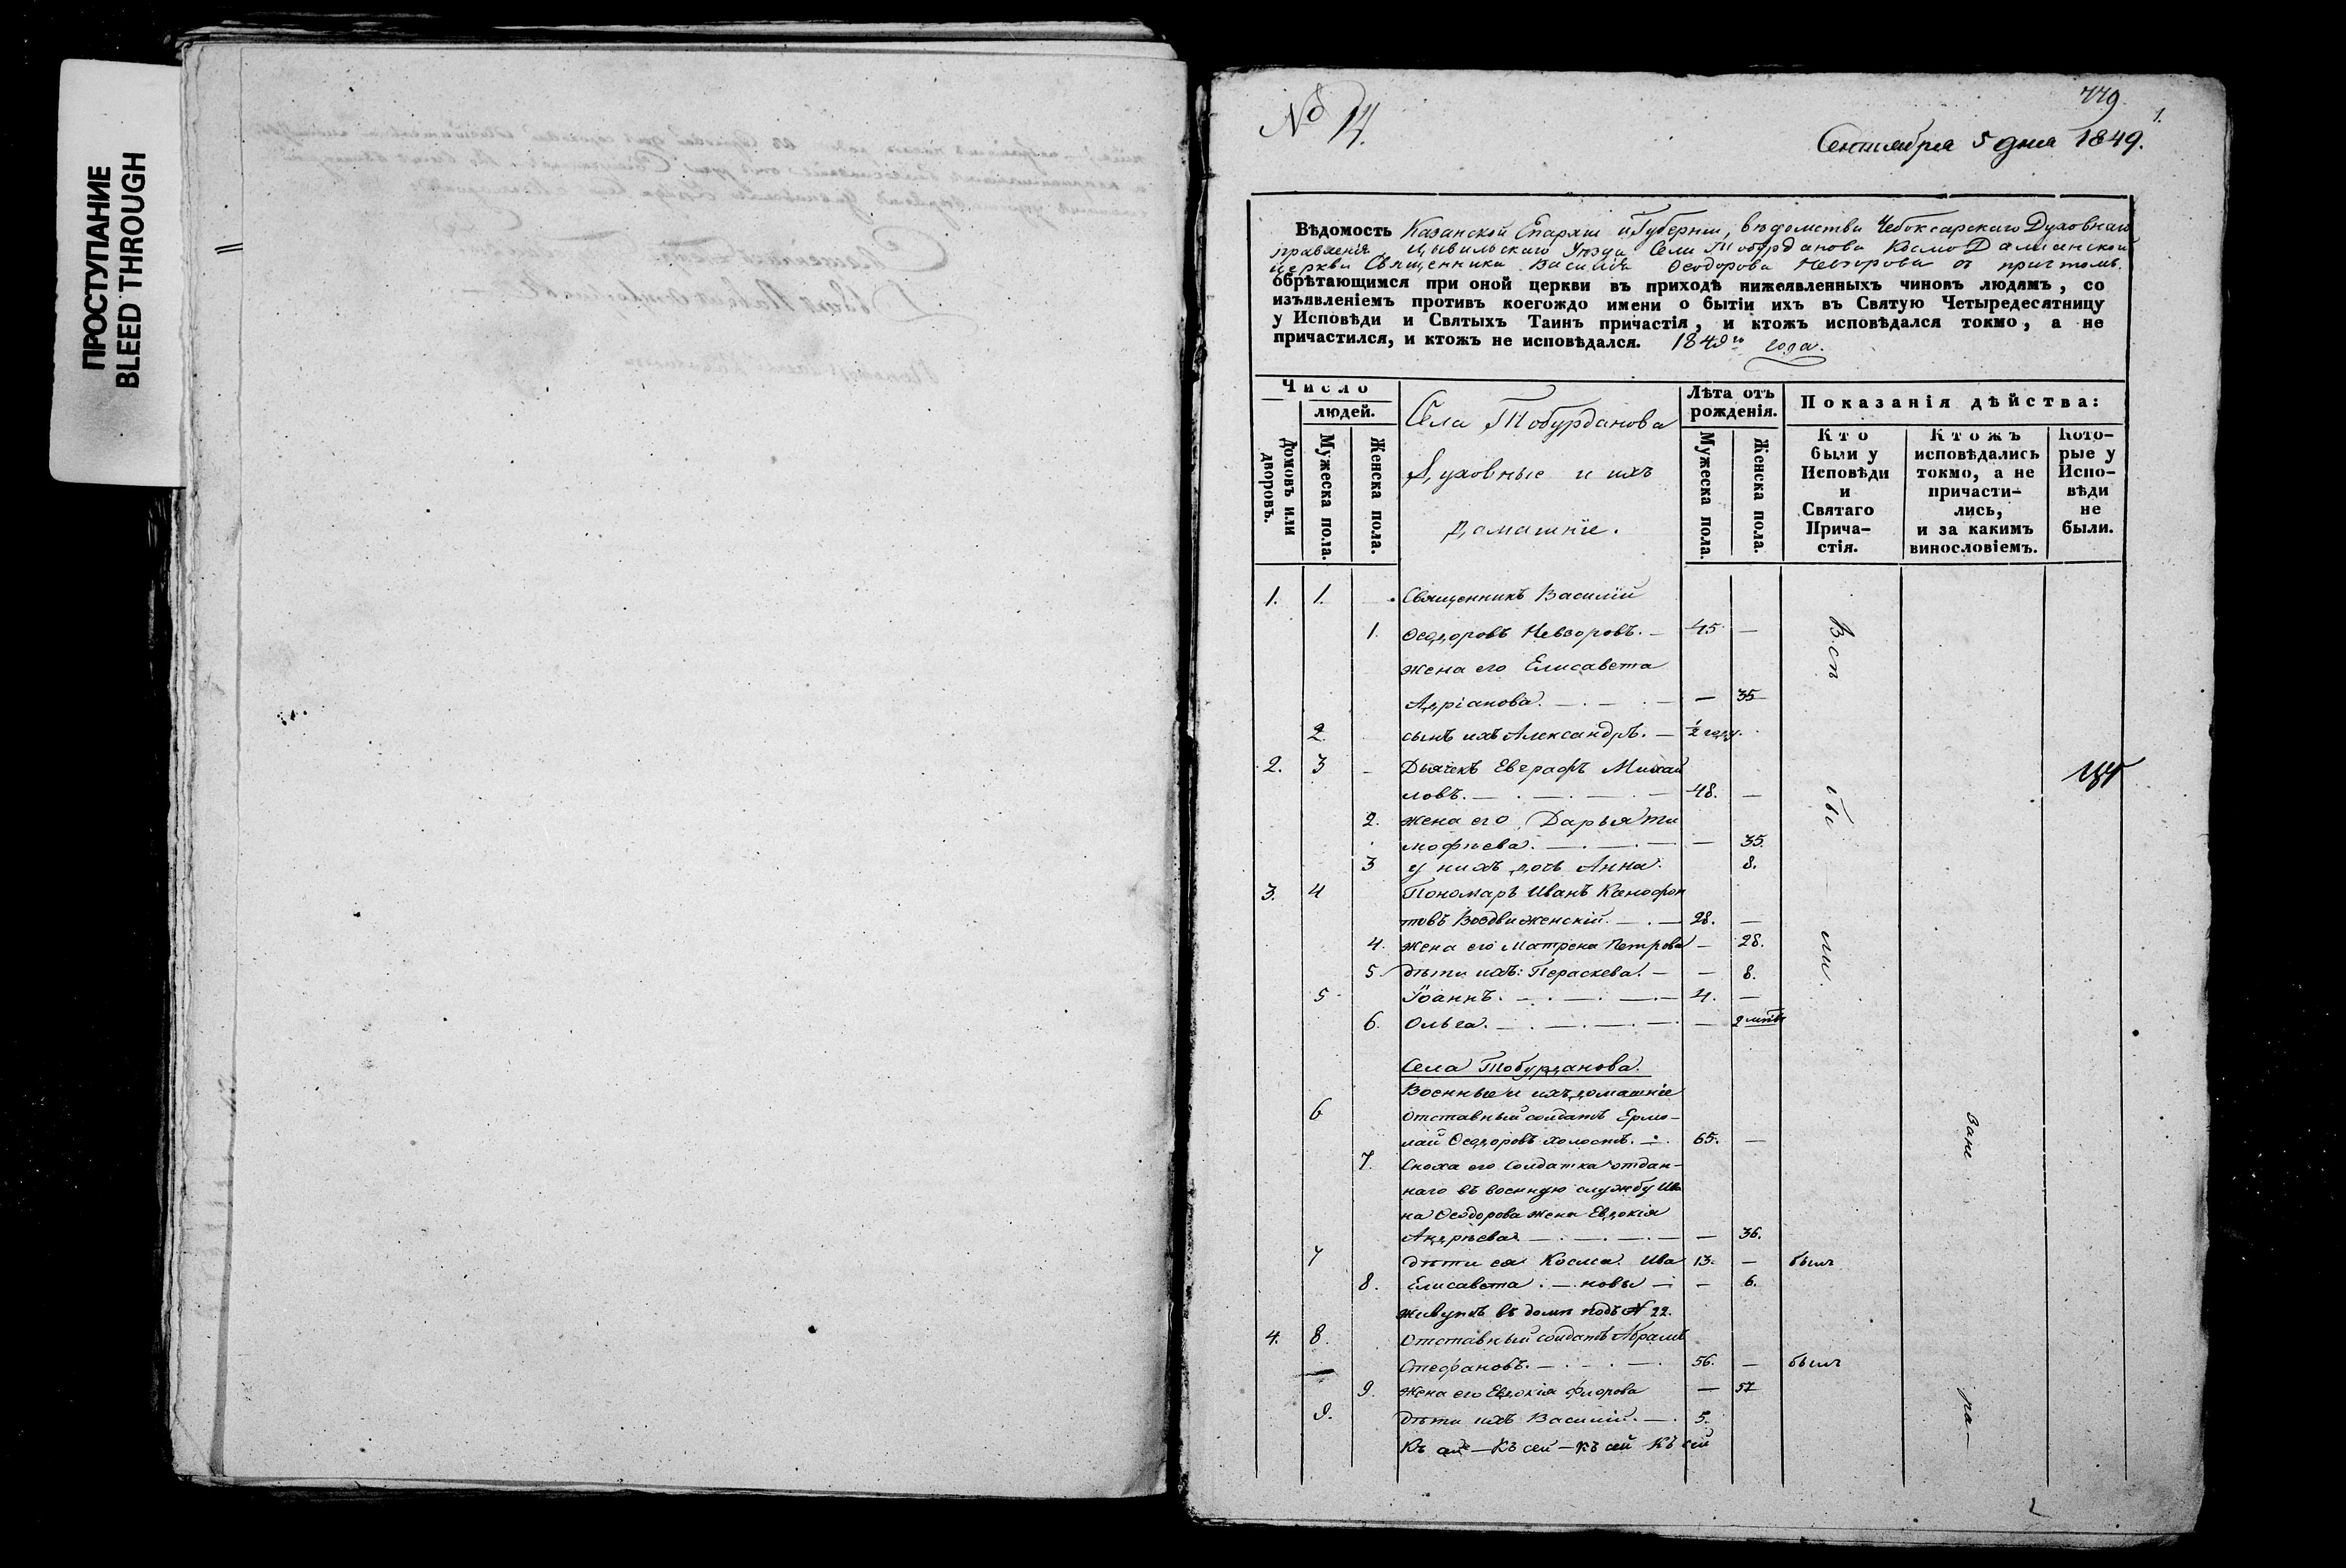 ПРОСТУПАНИЕ
BLEED THROUGH
№ 14.
779
1.
Сентября 5 дня 1849.
Вѣдомость Казанской Епархіи и Губерніи, вѣдомства Чебоксарскаго Духовнаго
правленія Цывильскаго Уѣзда Села Тобурданова КосмоДаміанской
церкви Священника Василія Ѳеодорова Невзорова съ причтомъ.
обрѣтающимся при оной церкви въ приходѣ нижеявленныхъ чиновъ людямъ, со
изъявленіемъ противъ коегождо имени о бытіи ихъ въ Святую Четыредесятницу
у Исповѣди и Святыхъ Таинъ причастія, и ктожъ исповѣдался токмо, а не
причастился, и ктожъ не исповѣдался. 1849го года.
Число
людей.
Домовъ или дворовъ.
Мужеска пола.
Женска пола.
Села Тобурданова
Духовные и ихъ
домашніе.
Лѣта отъ
рожденія.
Мужеска пола.
Женска пола.
Показанія дѣйства:
Кто
были у
Исповѣди
и
Святаго
Прича-
стія.
Ктожъ
исповѣдались
токмо, а не
причасти-
лись,
и за какимъ
винословіемъ.
Кото-
рые у
Испо-
вѣди
не
были.
1. 1. Священникъ Василій
1. Ѳеодоровъ Невзоровъ. — 45. —
жена его Елисавета
Адріанова. — — 35
2. сынъ ихъ Александръ. — ½ году.
2. 3 Дьячекъ Евграфъ Михай
ловъ. — 48. —
2. жена его Дарья Ти
мофѣева. — — 35.
3 у нихъ дочь Анна. 8.
3. 4 Пономарь Иванъ Ксенофон
товъ Воздвиженскій. — 28. —
4. жена его Матрена Петрова — 28.
5 дѣти ихъ: Параскева. — — 8.
5 Іоаннъ. — 4. —
6. Ольга. — — 2
Вси
бы—
ли.
Села Тобурданова.
Военные и ихъ домашніе
6 Отставный солдатъ Ермо-
лай Ѳеодоровъ холостъ. — 65. —
7. Сноха его Солдатка отдан-
наго въ военную службу Ива
на Ѳеодорова жена Евдокія
Андрѣева — — 36.
7 дѣти ея Косма Ива 13. — былъ
8. Елисавета. — новы — — 6.
живутъ въ домѣ подъ № 22.
4. 8. Отставный солдатъ Абрамъ
Стефановъ. — 56. — былъ
9. жена его Евдокія — 57
9. дѣти ихъ Василій. — 5.
Къ — Къ сей — Къ сей Къ сей